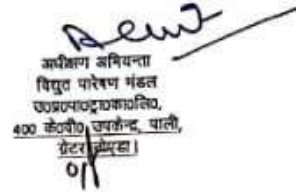 अधीक्षण अभियन्ता
विद्युत पारेषण मंडल
उ०प्र०पा०ट्रा०का०लि०,
400 के०वी० उपकेन्द्र, पाली,
ग्रेटर नोएडा।